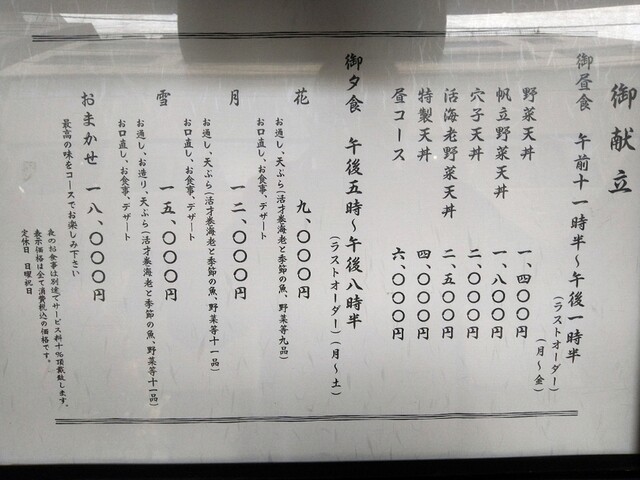 御献立
御昼食　午前十一時半～午後一時半
（ラストオーダー）
（月～金）
野菜天丼　一、四〇〇円
帆立野菜天丼　一、八〇〇円
穴子天丼　二、〇〇〇円
活海老野菜天丼　二、五〇〇円
特製天丼　四、〇〇〇円
昼コース　六、〇〇〇円
御夕食　午後五時～午後八時半
（ラストオーダー）（月～土）
花　九、〇〇〇円
お通し、天ぷら（活才巻海老と季節の魚、野菜等九品）
お口直し、お食事、デザート
月　一二、〇〇〇円
お通し、天ぷら（活才巻海老と季節の魚、野菜等十一品）
お口直し、お食事、デザート
雪　一五、〇〇〇円
お通し、お造り、天ぷら（活才巻海老と季節の魚、野菜等十一品）
お口直し、お食事、デザート
おまかせ　一八、〇〇〇円
最高の味をコースでお楽しみ下さい
夜のお食事は別途でサービス料十％頂戴致します。
表示価格は全て消費税込の価格です。
定休日　日曜祝日